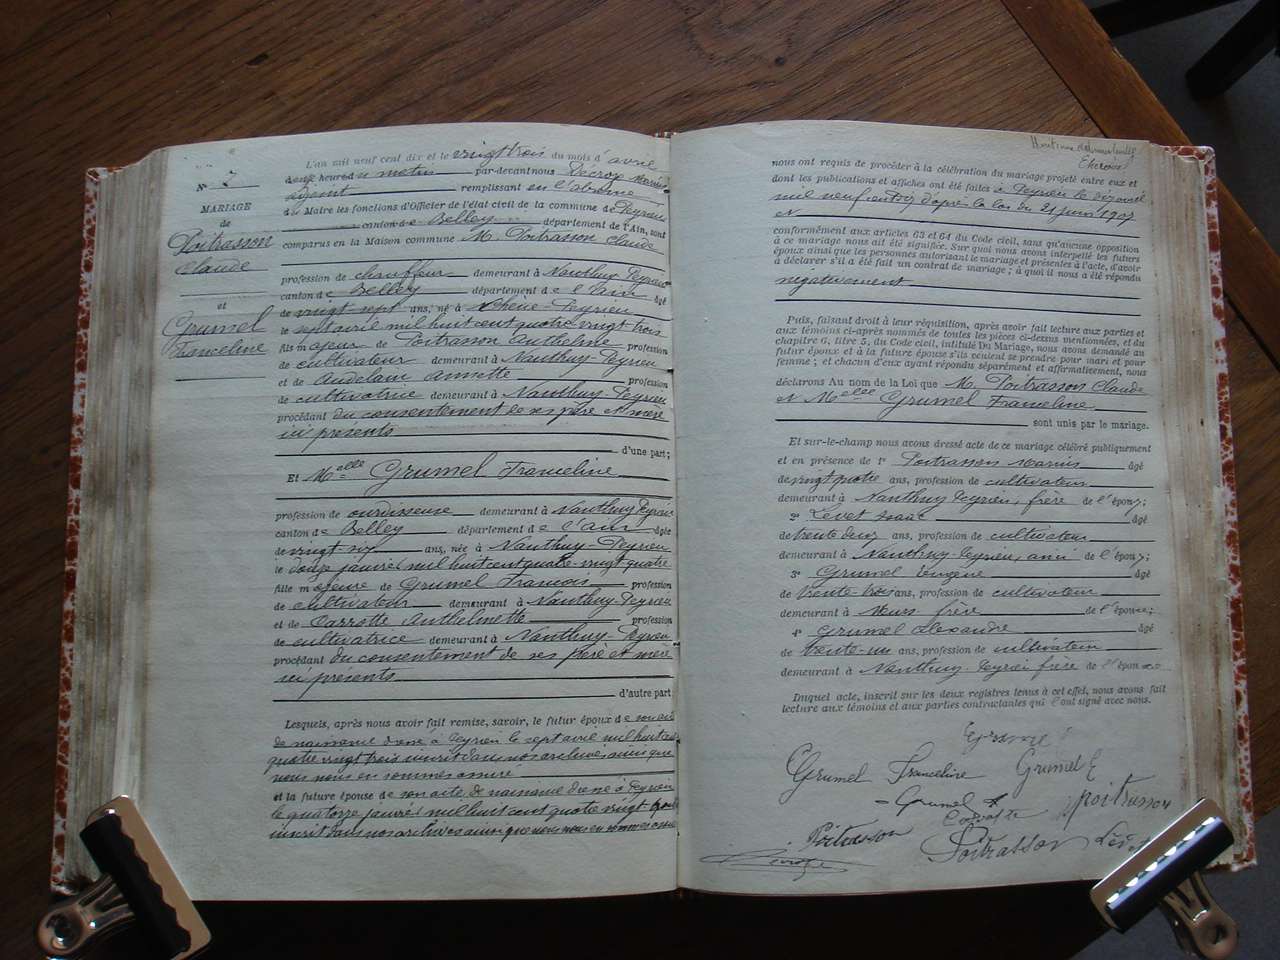 N° 7
MARIAGE
de
Poitrasson
Claude
et
Grumel
Franceline
L'an mil neuf cent dix et le vingt trois du mois d'avril
heures de matin par-devant nous Décroze Marius
adjoint remplissant en l'absence
du Maire les fonctions d'Officier de l'état civil de la commune de Peyrieu
canton de Belley département de l'Ain, sont
comparus en la Maison commune M. Poitrasson Claude
profession de chauffeur demeurant à Nanthuy Peyrieu
canton de Belley département de l'Ain âgé
de vingt sept ans, né à Peyrieu
le sept avril mil huit cent quatre vingt trois
fils majeur de Poitrasson Anthelme profession
de cultivateur demeurant à Nanthuy Peyrieu
et de Audelain Annette profession
de cultivatrice demeurant à Nanthuy-Peyrieu
procédant du consentement de ses père et mère
ici présents
d'une part;
Et Melle Grumel Franceline
profession de ourdisseuse demeurant à Nanthuy Peyrieu
canton de Belley département de l'Ain âgée
de vingt six ans, née à Nanthuy-Peyrieu
le douze janvier mil huit cent quatre vingt quatre
fille majeure de Grumel François profession
de cultivateur demeurant à Nanthuy-Peyrieu
et de Anthelmette profession
de cultivatrice demeurant à Nanthuy-Peyrieu
procédant du consentement de ses père et mère
ici présents
d'autre part
Lesquels, après nous avoir fait remise, savoir, le futur époux de son acte
de naissance dressé à Peyrieu le sept avril mil huit cent
quatre vingt trois inscrit dans nos archives ainsi que
nous nous en sommes assuré
et la future épouse de son acte de naissance dressé à Peyrieu
le quatorze janvier mil huit cent quatre vingt quatre
inscrit dans nos archives ainsi que nous nous en sommes assuré
nous ont requis de procéder à la célébration du mariage projeté entre eux et
dont les publications et affiches ont été faites à Peyrieu le dix avril
mil neuf cent dix d'après la loi du 21 juin 1907
et
conformément aux articles 63 et 64 du Code civil, sans qu'aucune opposition
à ce mariage nous ait été signifiée. Sur quoi nous avons interpellé les futurs
époux ainsi que les personnes autorisant le mariage et présentes à l'acte, d'avoir
à déclarer s'il a été fait un contrat de mariage; à quoi il nous a été répondu
négativement
Puis, faisant droit à leur réquisition, après avoir fait lecture aux parties et
aux témoins ci-après nommés de toutes les pièces ci-dessus mentionnées, et du
chapitre 6, titre 5, du Code civil, intitulé Du Mariage, nous avons demandé au
futur époux et à la future épouse s'ils veulent se prendre pour mari et pour
femme; et chacun d'eux ayant répondu séparément et affirmativement, nous
déclarons Au nom de la Loi que M. Poitrasson Claude
et Melle Grumel Franceline
sont unis par le mariage.
Et sur-le-champ nous avons dressé acte de ce mariage célébré publiquement
et en présence de 1° Poitrasson Marius âgé
de vingt quatre ans, profession de cultivateur
demeurant à Nanthuy Peyrieu, frère de l'époux;
2° Levet Isaac âgé
de trente deux ans, profession de cultivateur
demeurant à Nanthuy Peyrieu, ami de l'époux;
3° Grumel Eugène âgé
de trente trois ans, profession de cultivateur
demeurant à frère de l'épouse;
4° Grumel Alexandre âgé
de trente-un ans, profession de cultivateur
demeurant à Nanthuy-Peyrieu frère de l'épouse
Duquel acte, inscrit sur les deux registres tenus à cet effet, nous avons fait
lecture aux témoins et aux parties contractantes qui l'ont signé avec nous.
Grumel Franceline Grumel E
Grumel A Poitrasson
Poitrasson Poitrasson Levet